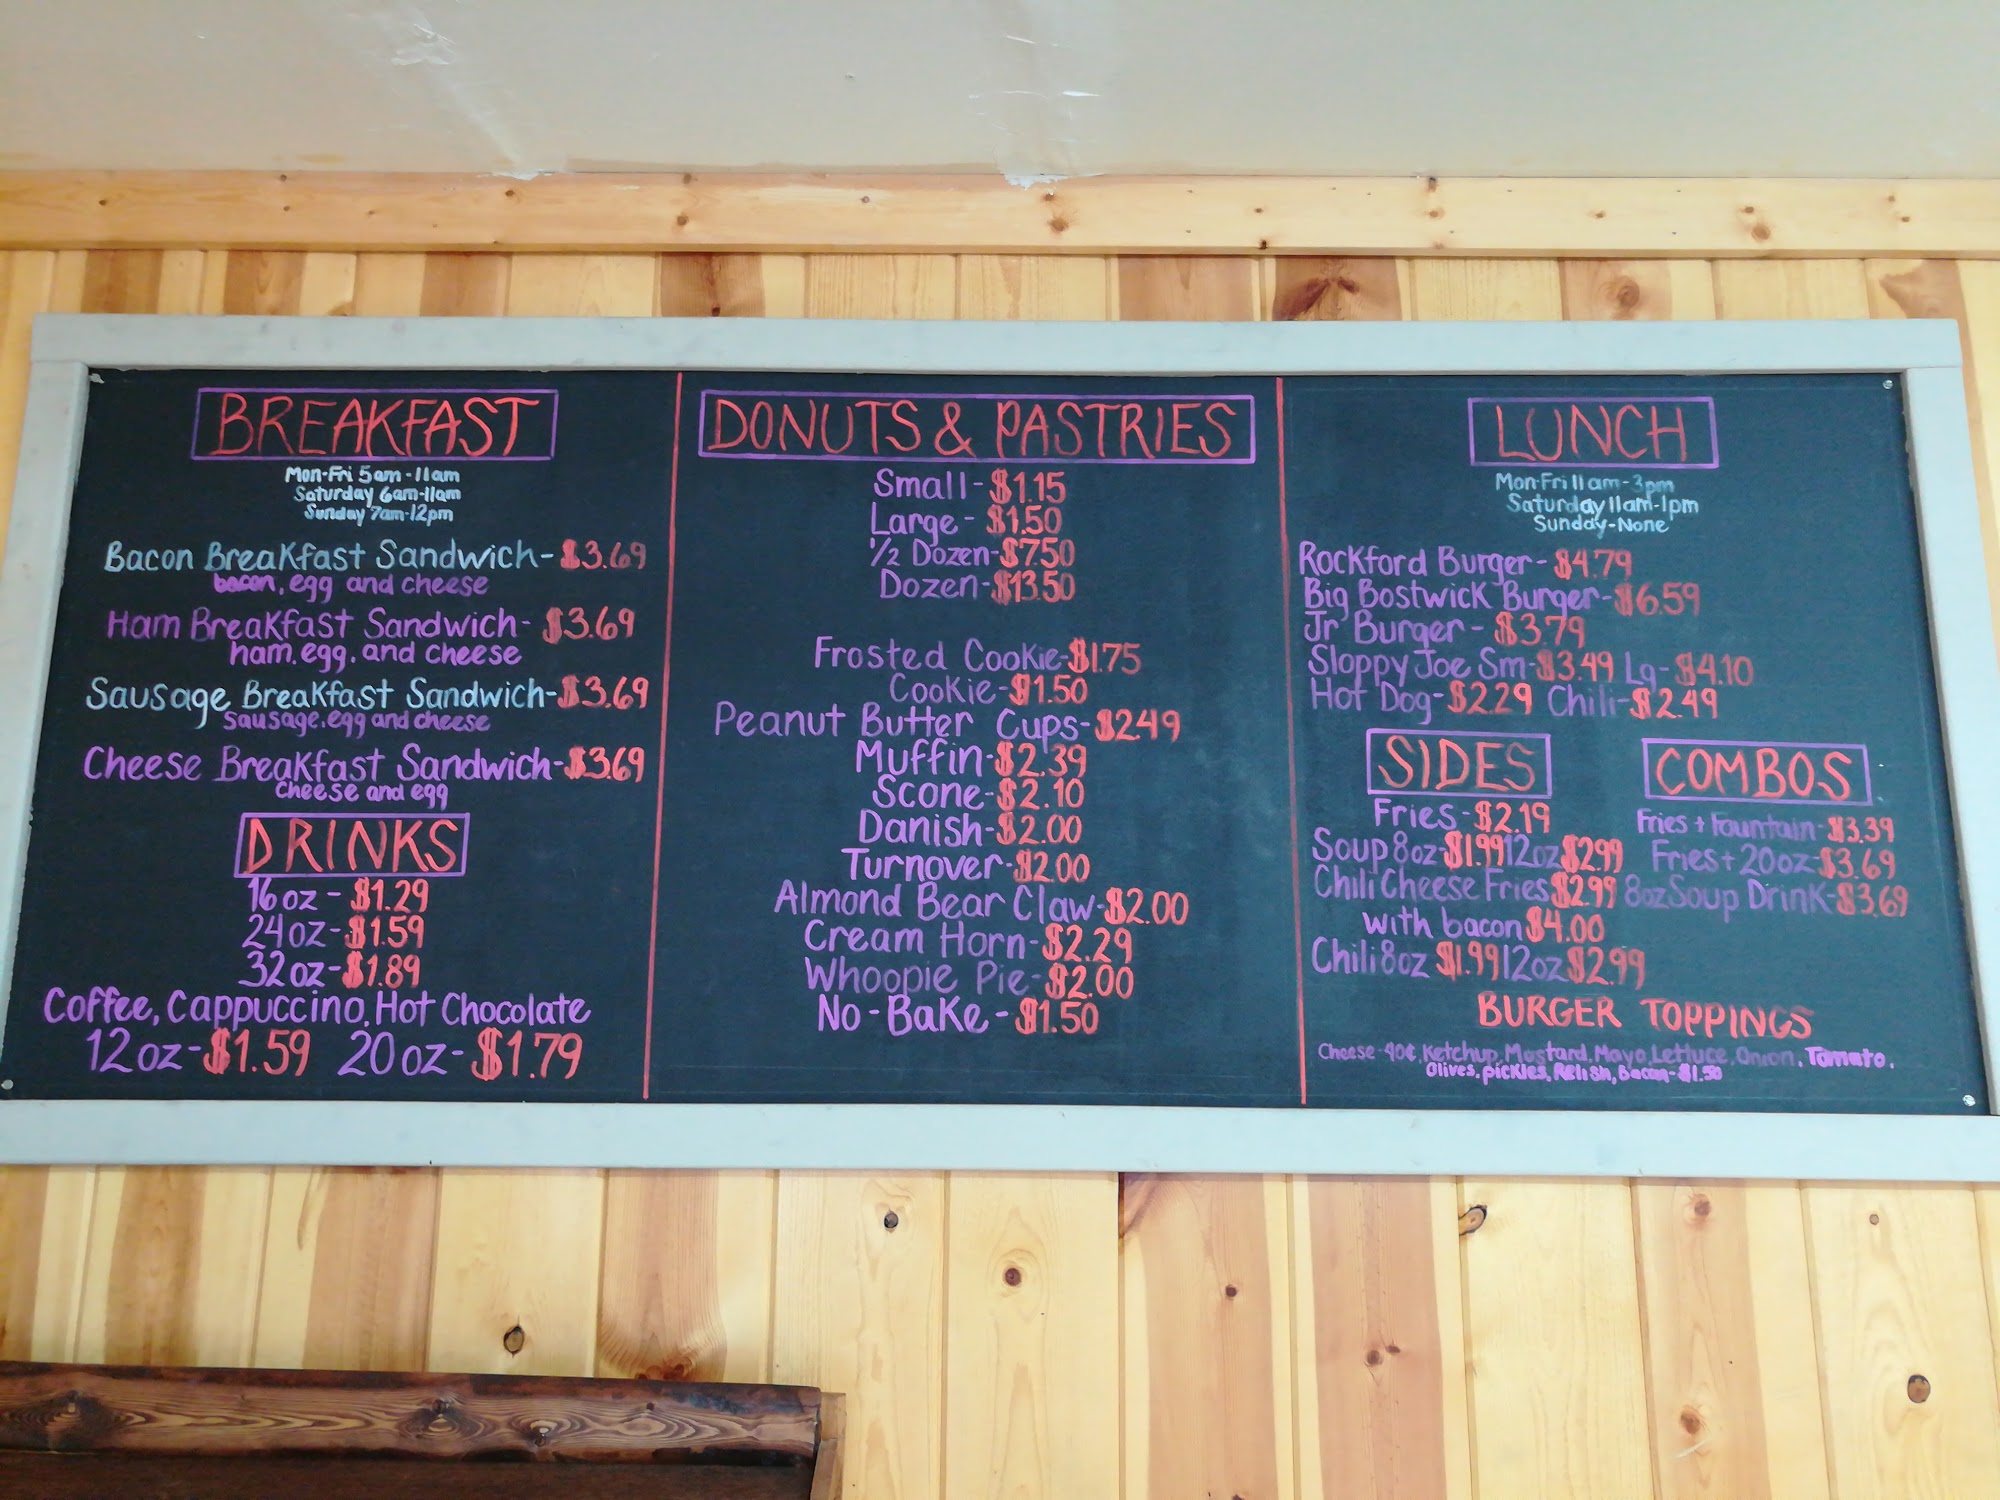 BREAKFAST
Mon-Fri 5am-11am
Saturday 6am-11am
Sunday 7am-12pm
Bacon Breakfast Sandwich-$3.69
bacon, egg and cheese
Ham Breakfast Sandwich-$3.69
ham, egg, and cheese
Sausage Breakfast Sandwich-$3.69
sausage, egg and cheese
Cheese Breakfast Sandwich-$3.69
Cheese and egg
DRINKS
16oz-$1.29
24oz-$1.59
32oz-$1.89
Coffee, Cappuccino, Hot Chocolate
12oz-$1.59 20oz-$1.79
DONUTS & PASTRIES
Small-$1.15
Large-$1.50
1/2 Dozen-$7.50
Dozen-$13.50
Frosted Cookie-$1.75
Cookie-$1.50
Peanut Butter Cups-$2.49
Muffin-$2.39
Scone-$2.10
Danish-$2.00
Turnover-$2.00
Almond Bear Claw-$2.00
Cream Horn-$2.29
Whoopie Pie-$2.00
No-Bake-$1.50
LUNCH
Mon-Fri 11am-3pm
Saturday 11am-1pm
Sunday-None
Rockford Burger-$4.79
Big Bostwick Burger-$6.59
Jr Burger-$3.79
Sloppy Joe Sm-$3.49 Lg-$4.10
Hot Dog-$2.29 Chili-$2.49
SIDES
Fries-$2.19
Soup 8oz-$1.99 12oz $2.99
Chili Cheese Fries $2.99
with bacon $4.00
Chili 8oz $1.99 12oz $2.99
COMBOS
Fries + Fountain-$3.39
Fries + 20oz-$3.69
8oz Soup Drink-$3.69
BURGER TOPPINGS
Cheese-40¢, Ketchup, Mustard, Mayo, Lettuce, Onion, Tomato,
Olives, pickles, Relish, Bacon-$1.50